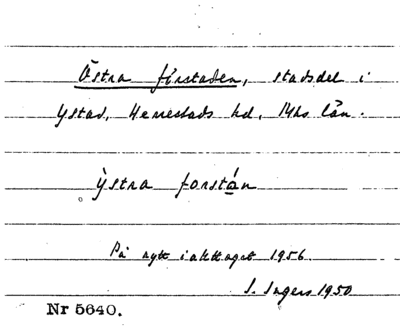 Östra förstaden, stadsdel i
Ystad, Herrestads hd, Mhs län.
ÿstra forstán
På nytt iakttaget 1956
I. Ingers 1950
Nr 5640.